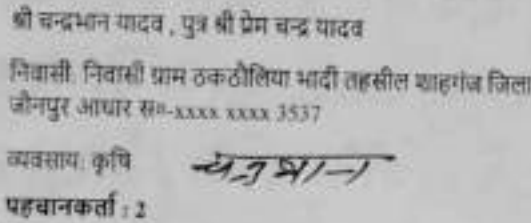 श्री चन्द्रभान यादव , पुत्र श्री प्रेम चन्द्र यादव
निवासी: निवासी ग्राम ठकठौलिया भादी तहसील शाहगंज जिला
जौनपुर आधार स॰-xxxx xxxx 3537
व्यवसाय: कृषि चन्द्रभान
पहचानकर्ता : 2